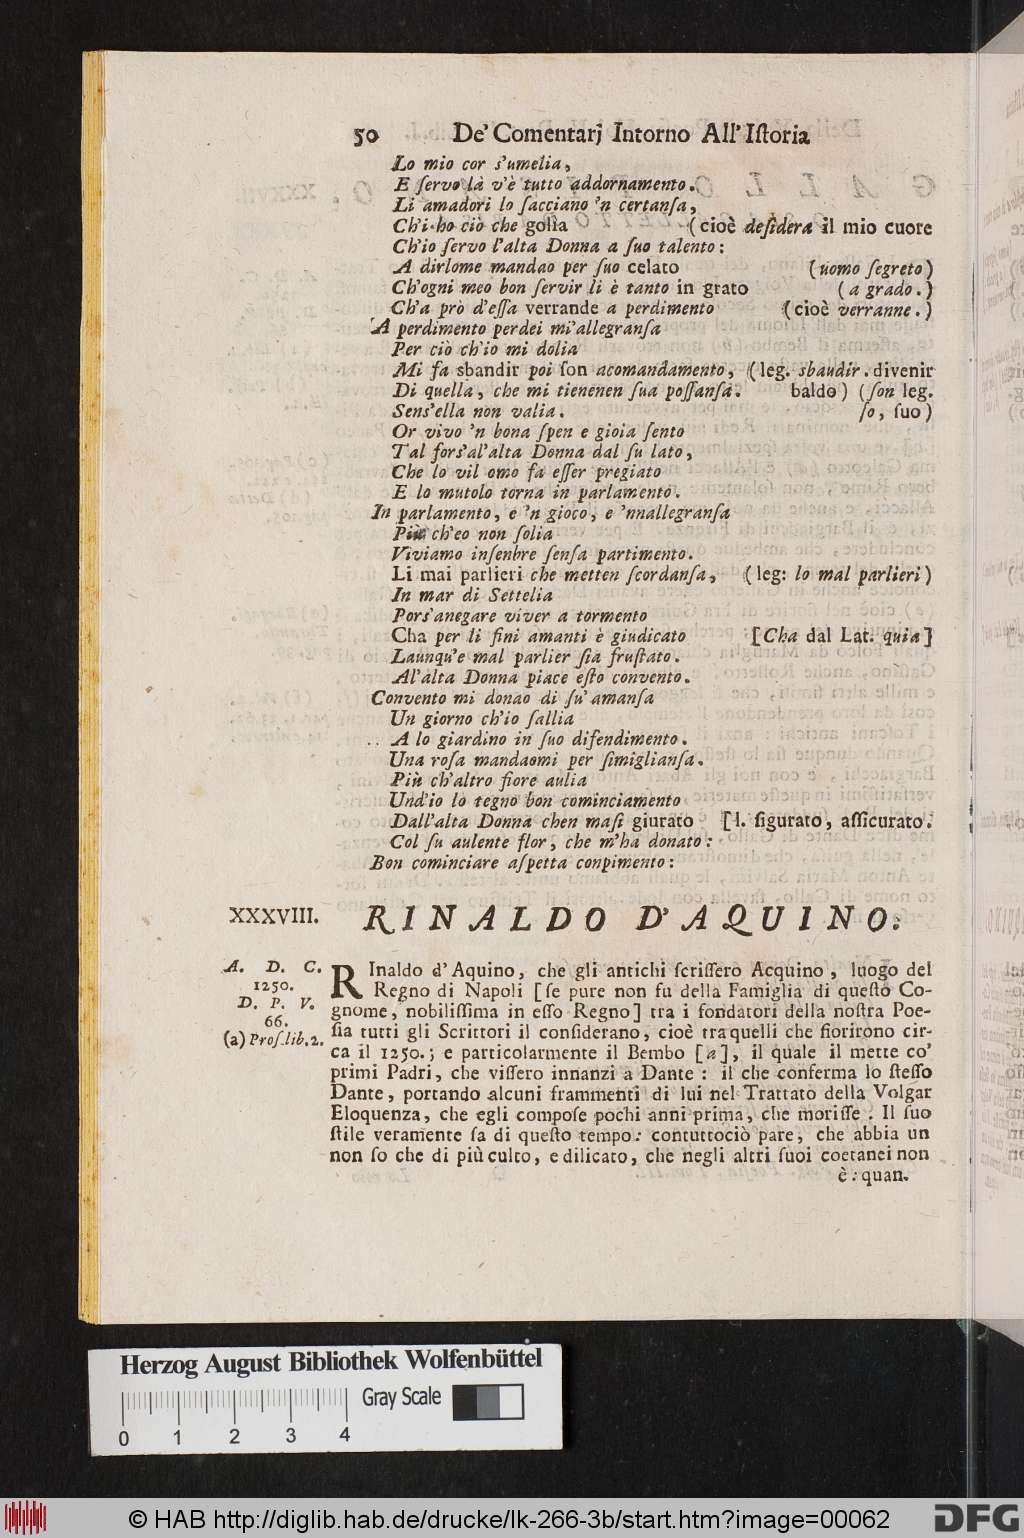 50 De' Comentarj Intorno All' Iſtoria
Lo mio cor s'umelia,
E ſervo là v'è tutto addornamento.
Li amadori lo ſacciano 'n certanſa,
Ch'i ho ciò che golia (cioè deſidera il mio cuore
Ch'io ſervo l'alta Donna a ſuo talento:
A dirlome mandao per ſuo celato (uomo ſegreto)
Ch'ogni meo bon ſervir li è tanto in grato (a grado.)
Ch'a prò d'eſſa verrande a perdimento (cioè verranne.)
A perdimento perdei mi'allegranſa
Per ciò ch'io mi dolia
Mi fa sbandir poi ſon acomandamento, (leg. sbaudir. divenir
Di quella, che mi tienenen ſua poſſanſa. baldo) (ſon leg.
Sens'ella non valia. ſo, ſuo)
Or vivo 'n bona ſpen e gioia ſento
Tal fors'al'alta Donna dal ſu lato,
Che lo vil omo fa eſſer pregiato
E lo mutolo torna in parlamento.
In parlamento, e 'n gioco, e 'nnallegranſa
Più ch'eo non ſolia
Viviamo inſenbre ſenſa partimento.
Li mai parlieri che metten ſcordanſa, (leg: lo mal parlieri)
In mar di Settelia
Pors'anegare viver a tormento
Cha per li fini amanti è giudicato [Cha dal Lat. quia]
Launqu'e mal parlier ſia fruſtato.
Al'alta Donna piace eſto convento.
Convento mi donao di ſu' amanſa
Un giorno ch'io ſallia
A lo giardino in ſuo difendimento.
Una roſa mandaomi per ſimiglianſa.
Più ch'altro fiore aulia
Und'io lo tegno bon cominciamento
Dall'alta Donna chen maſi giurato [l. ſigurato, aſſicurato.
Col ſu aulente flor, che m'ha donato:
Bon cominciare aſpetta conpimento:
XXXVIII. RINALDO D'AQUINO.
A. D. C.
1250.
D. P. V.
66.
(a) Proſ.lib.2.
RInaldo d'Aquino, che gli antichi ſcriſſero Acquino, luogo del
Regno di Napoli [ſe pure non fu della Famiglia di queſto Co-
gnome, nobiliſſima in eſſo Regno] tra i fondatori della noſtra Poe-
ſia tutti gli Scrittori il conſiderano, cioè tra quelli che fiorirono cir-
ca il 1250.; e particolarmente il Bembo [a], il quale il mette co'
primi Padri, che viſſero innanzi a Dante: il che conferma lo ſteſſo
Dante, portando alcuni frammenti di lui nel Trattato della Volgar
Eloquenza, che egli compoſe pochi anni prima, che moriſſe. Il ſuo
ſtile veramente ſa di queſto tempo: contuttociò pare, che abbia un
non ſo che di più culto, e dilicato, che negli altri ſuoi coetanei non
è: quan.
Herzog August Bibliothek Wolfenbüttel
Gray Scale
0 1 2 3 4
© HAB http://diglib.hab.de/drucke/lk-266-3b/start.htm?image=00062
DFG